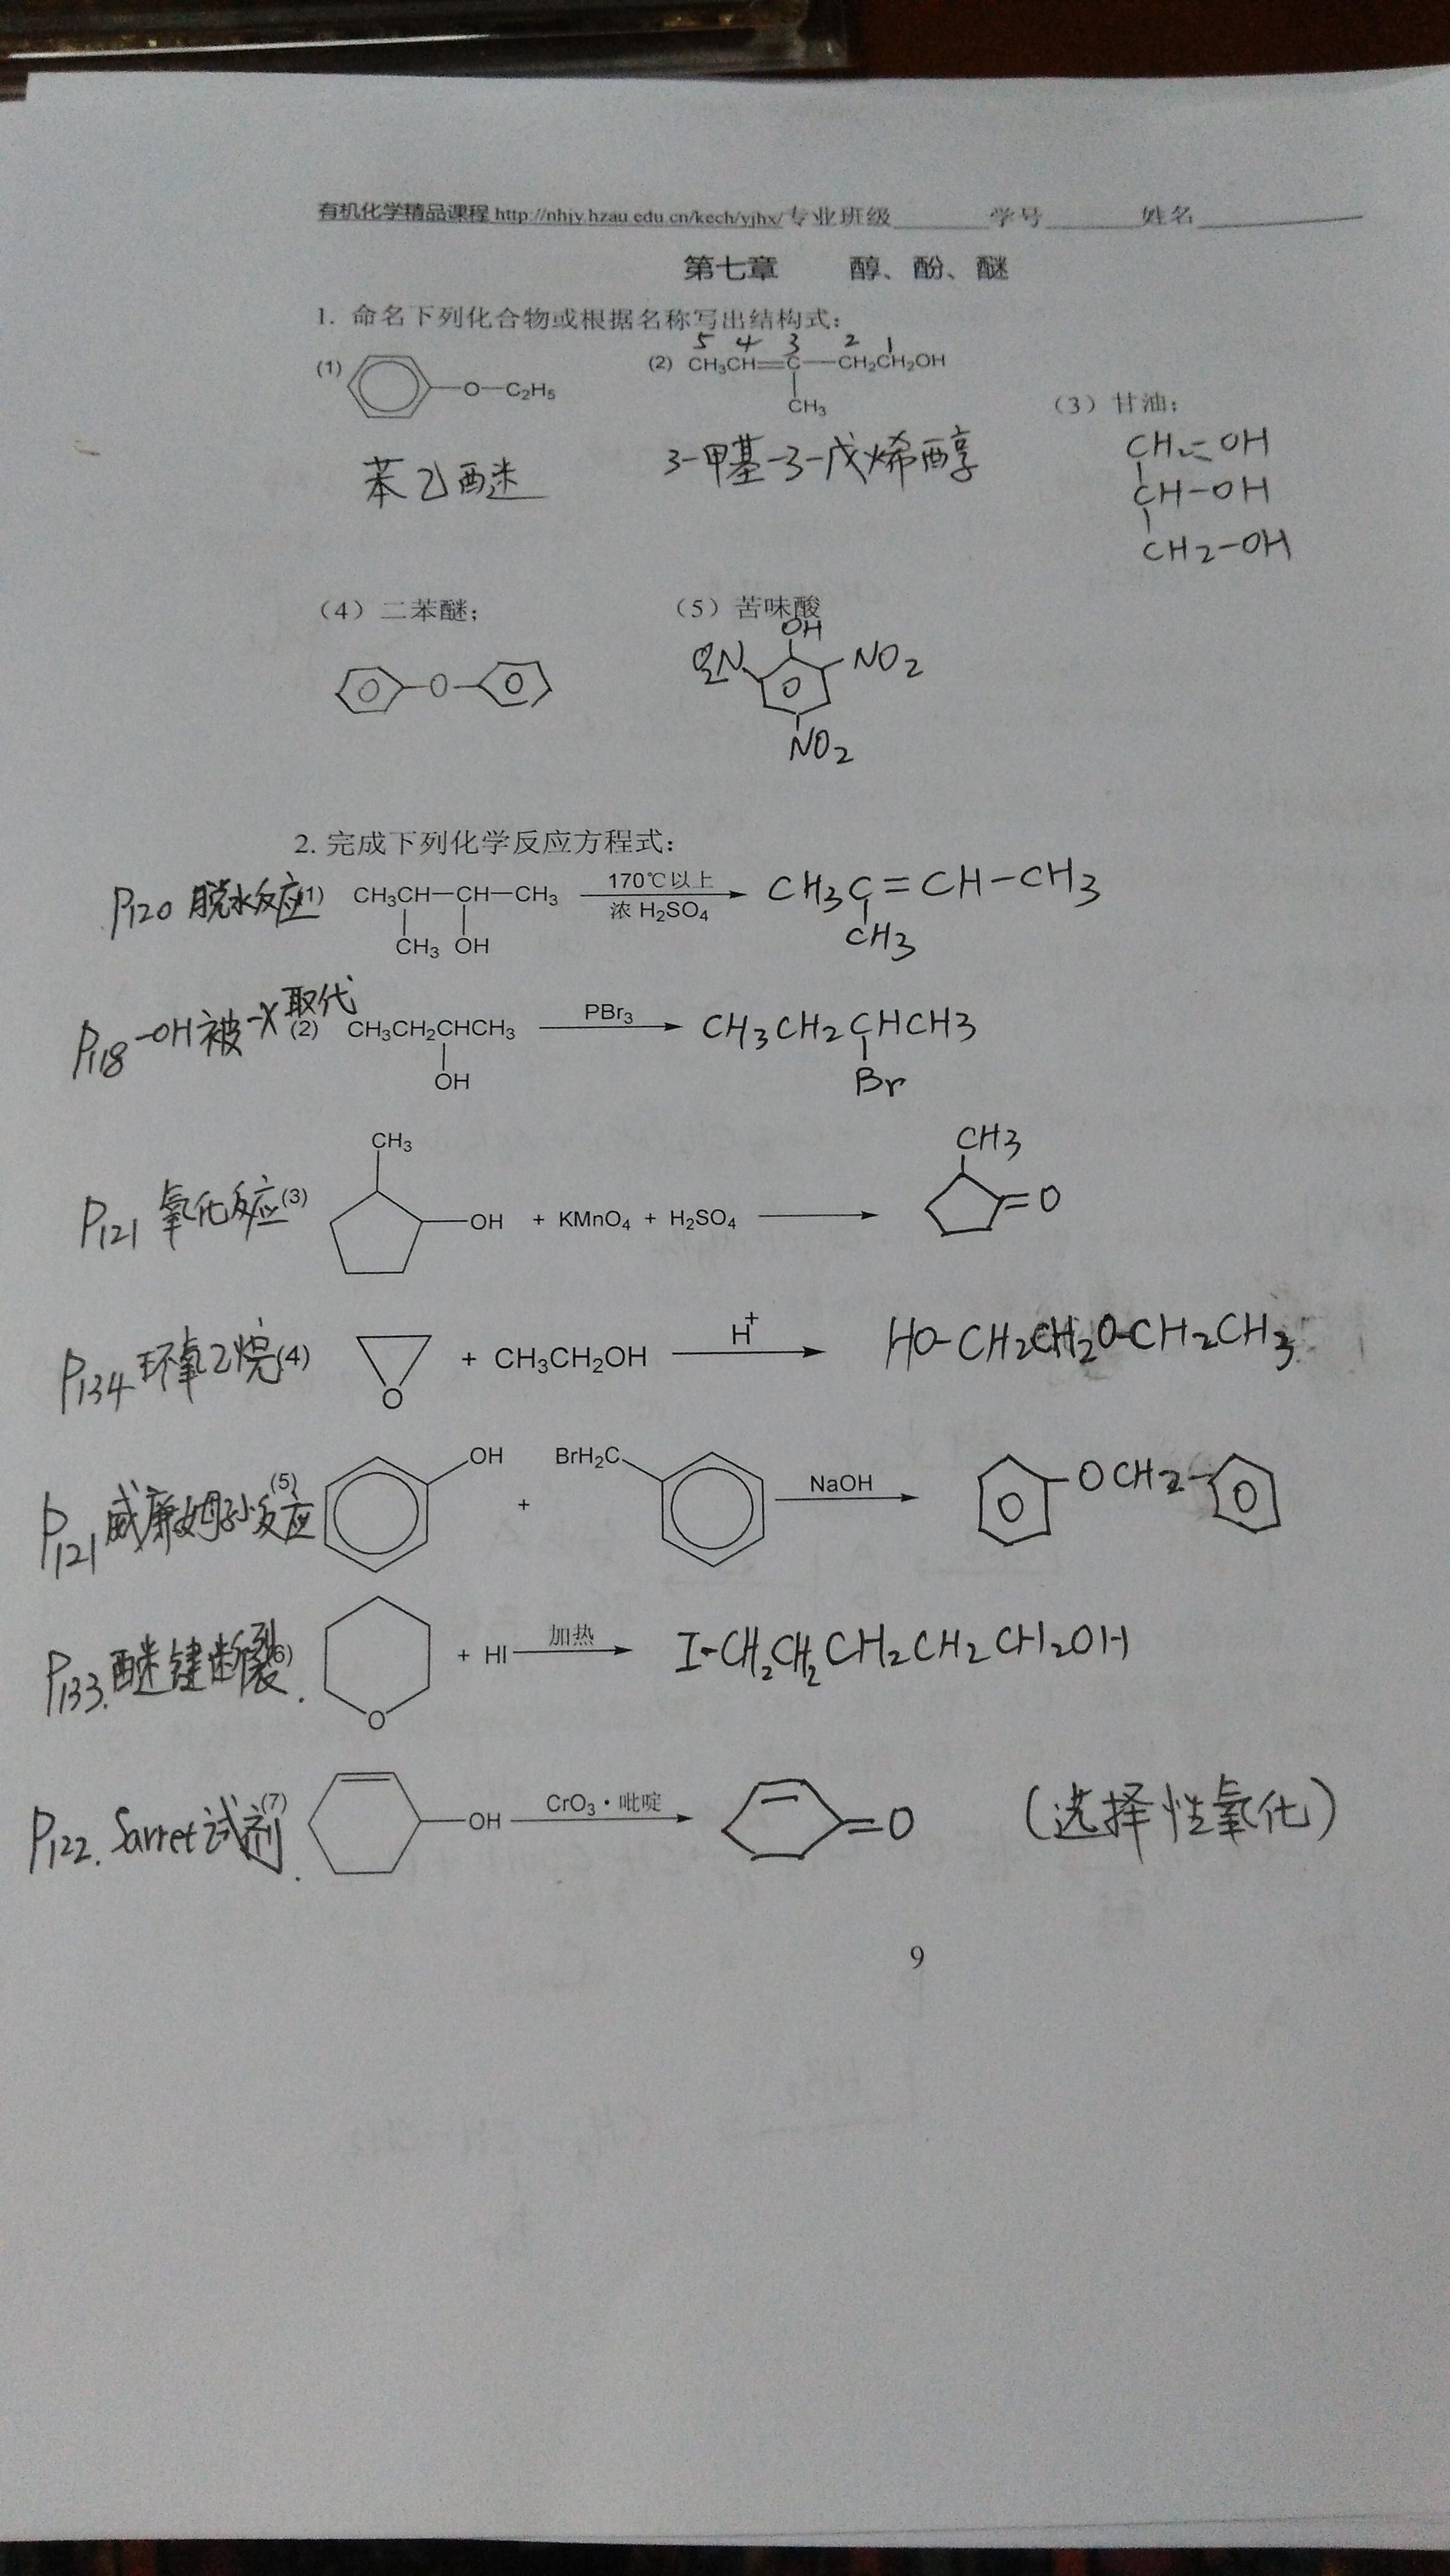 有机化学精品课程 http://nhjy.hzau.edu.cn/kech/yjhx/ 专业班级______学号______姓名__________
第七章 醇、酚、醚
1. 命名下列化合物或根据名称写出结构式:
5 4 3 2 1
(1) O—C₂H₅ (2) CH₃CH=C—CH₂CH₂OH
CH₃
(3) 甘油;
苯乙醚 3-甲基-3-戊烯醇
CH₂-OH
CH-OH
CH₂-OH
(4) 二苯醚; (5) 苦味酸
OH
O O₂N NO₂
NO₂
2. 完成下列化学反应方程式:
P120 脱水反应 (1) CH₃CH—CH—CH₃ 170℃以上 浓 H₂SO₄ CH₃C=CH-CH₃
CH₃ OH CH₃
P118 -OH被-X取代 (2) CH₃CH₂CHCH₃ PBr₃ CH₃CH₂CHCH₃
OH Br
CH₃ CH₃
P121 氧化反应 (3) OH + KMnO₄ + H₂SO₄ =O
P134 环氧乙烷 (4) O + CH₃CH₂OH H⁺ HO-CH₂CH₂O-CH₂CH₃
P121 威廉姆孙反应 (5) OH + BrH₂C NaOH OCH₂-
P133. 醚键断裂. (6) O + HI 加热 I-CH₂CH₂CH₂CH₂CH₂OH
P122. Sarret试剂. (7) OH CrO₃·吡啶 =O (选择性氧化)
9